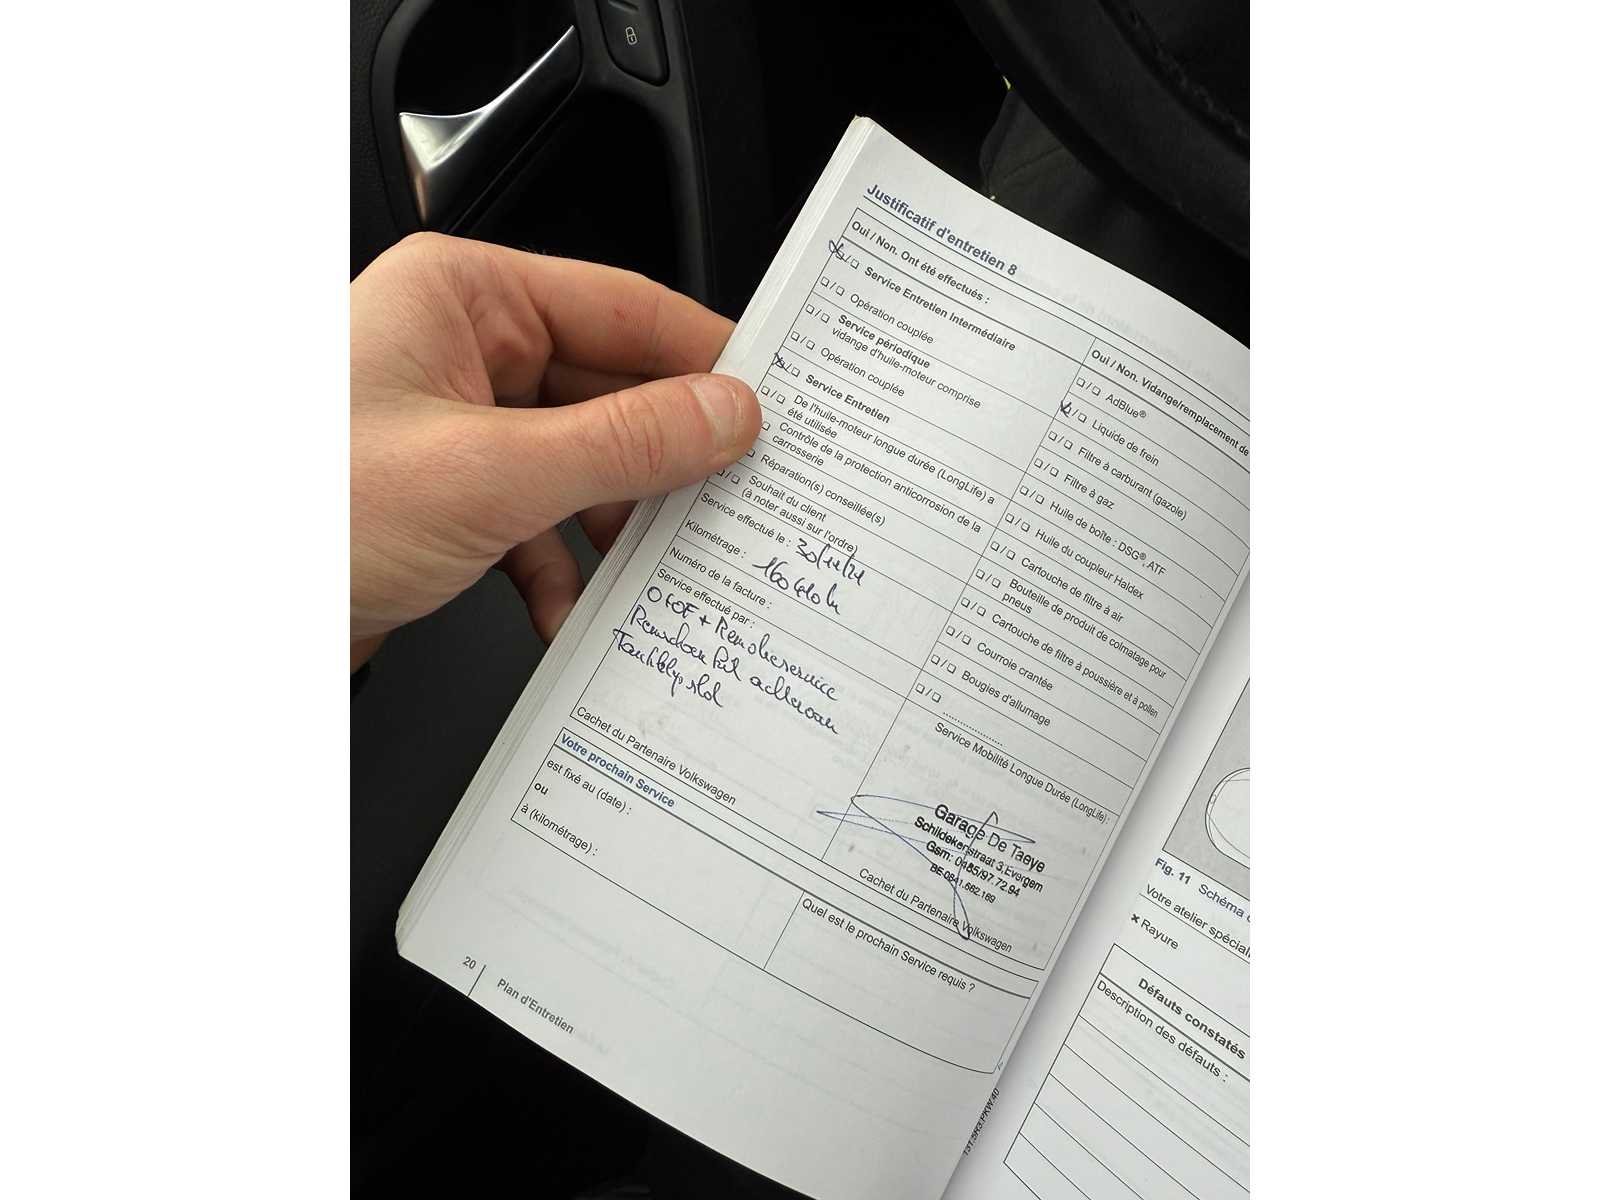 Justificatif d'entretien 8
Oui / Non. Ont été effectués :
❏/❏ Service Entretien Intermédiaire
❏/❏ Opération couplée
❏/❏ Service périodique
vidange d'huile-moteur comprise
❏/❏ Opération couplée
❏/❏ Service Entretien
❏/❏ De l'huile-moteur longue durée (LongLife) a
été utilisée
❏ Contrôle de la protection anticorrosion de la
carrosserie
❏ Réparation(s) conseillée(s)
❏/❏ Souhait du client
(à noter aussi sur l'ordre)
Service effectué le :
Kilométrage :
Numéro de la facture :
Service effectué par :
O + OF + Remolieservice
Cachet du Partenaire Volkswagen
Oui / Non. Vidange/remplacement de
❏/❏ AdBlue®
❏/❏ Liquide de frein
❏/❏ Filtre à carburant (gazole)
❏/❏ Filtre à gaz
❏/❏ Huile de boîte : DSG®, ATF
❏/❏ Huile du coupleur Haldex
❏/❏ Cartouche de filtre à air
❏/❏ Bouteille de produit de colmatage pour
pneus
❏/❏ Cartouche de filtre à poussière et à pollen
❏/❏ Courroie crantée
❏/❏ Bougies d'allumage
❏/❏ ....................
Service Mobilité Longue Durée (LongLife) :
Garage De Taeye
Schildekenstraat 3, Evergem
Gsm: 0485/97.72.94
BE 0841.662.169
Cachet du Partenaire Volkswagen
Votre prochain Service
est fixé au (date) :
ou
à (kilométrage) :
Quel est le prochain Service requis ?
20
Plan d'Entretien
131.5R3.PKW.40
Fig. 11 Schéma
Votre atelier
× Rayure
Défauts constatés
Description des défauts :